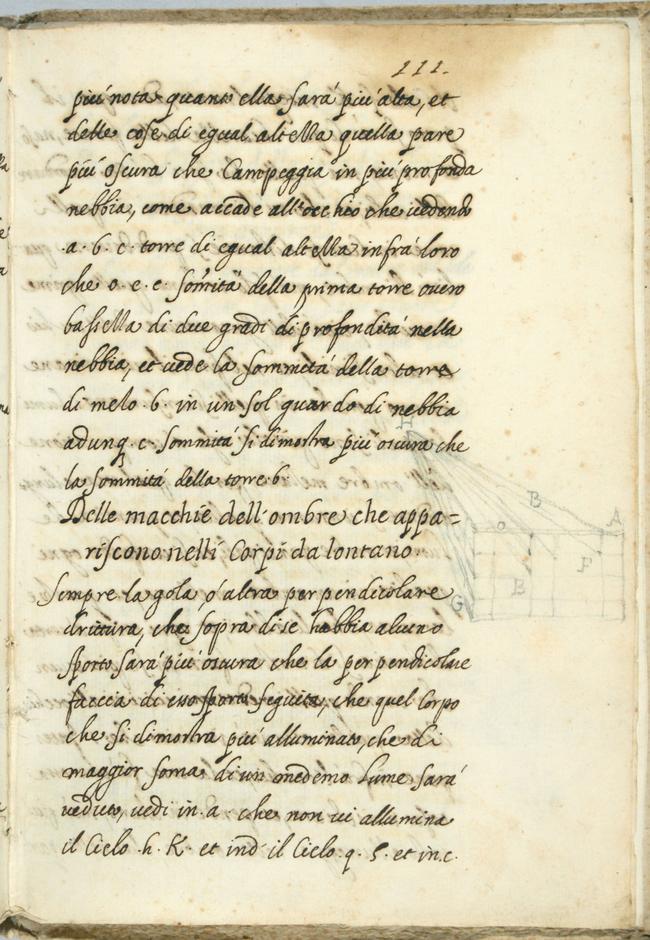 111.
piu' nota quanto ella sara' piu' alta, et
delle cose di egual altezza quella pare
piu' oscura che Campeggia in piu' profonda
nebbia, come accade all'occhio che vedendo
.a. b. c. torre di egual altezza infra' loro
che o. e. c. somita' della prima torre overo
bassezza di due gradi di profondita' nella
nebbia, et vede la sommita' della torre
di mezo .b. in un sol guardo di nebbia
adunq. c. sommita' si dimostra piu' oscura che
la sommita' della torre .b.
Delle macchie dell'ombre che appa=
riscono nelli Corpi da lontano.
Sempre la gola, o' altra perpendicolare
drittura, che sopra di se habbia alcuno
sporto sara' piu' oscura che la perpendicolare
faccia di esso sporto seguita, che quel Corpo
che si dimostra piu' alluminato, che di
maggior soma di un medemo Lume sara'
veduto, vedi in .a. che non vi allumina
il Cielo .h. K. et in d. il Cielo .q. S. et in .c.
B
A
o
F
E
G